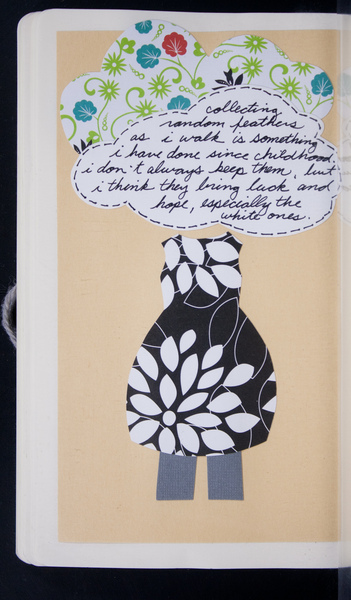 collecting
random feathers
as i walk is something
i have done since childhood.
i don't always keep them, but
i think they bring luck and
hope, especially the
white ones.